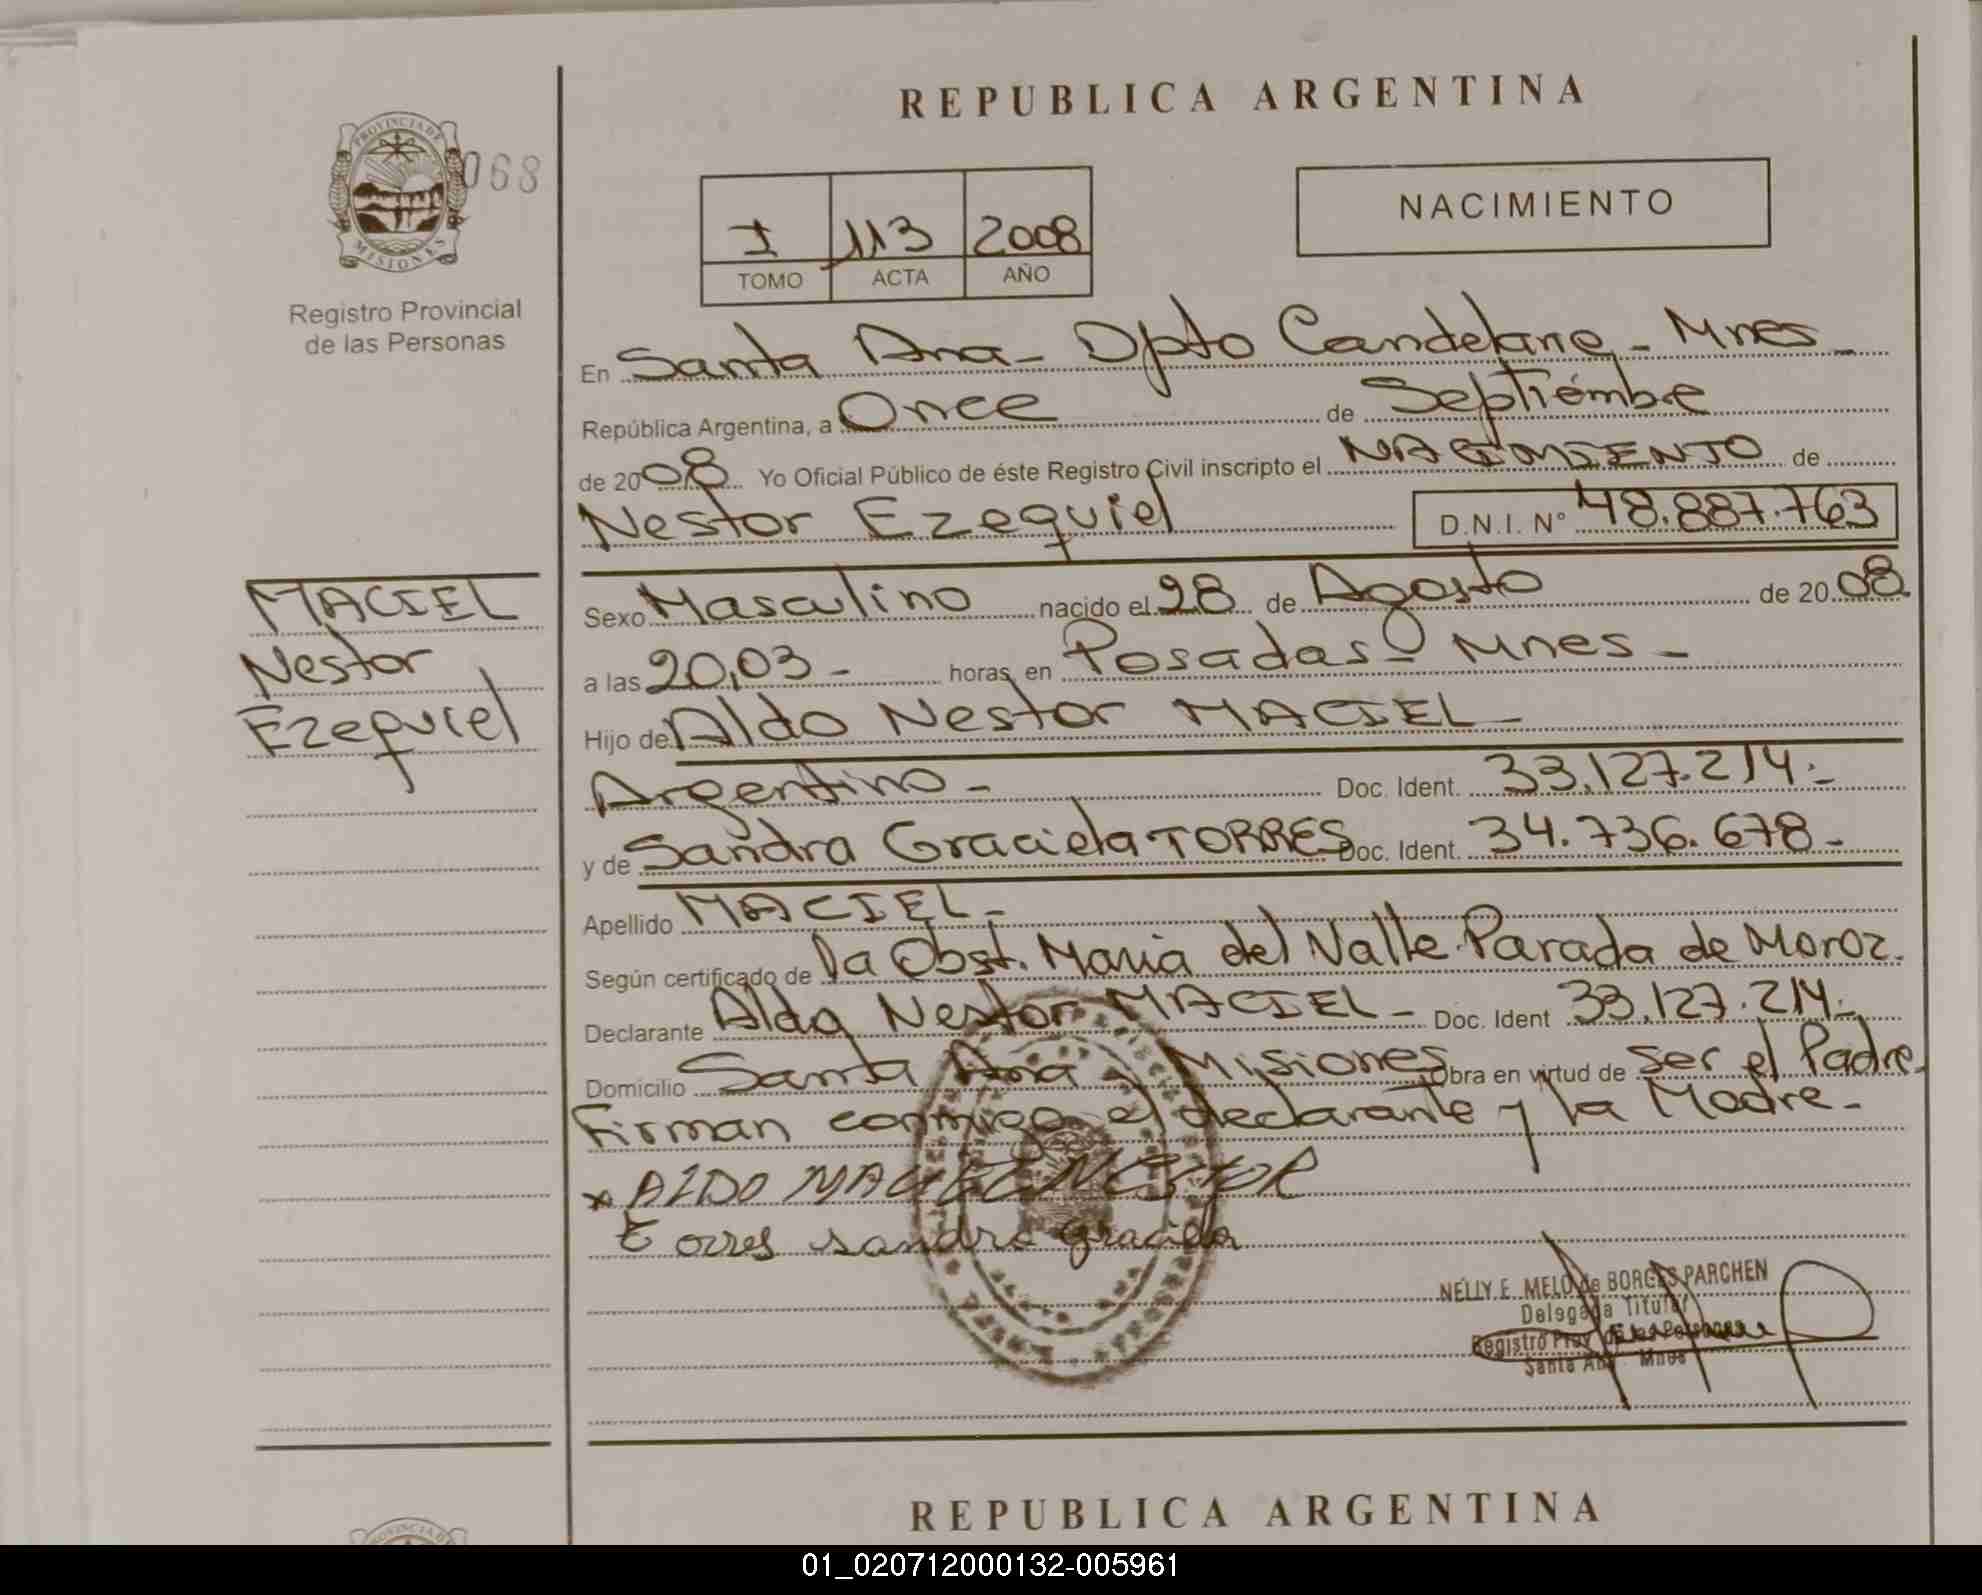 REPUBLICA ARGENTINA
PROVINCIA DE
MISIONES
068
Registro Provincial
de las Personas
I 113 2008
TOMO ACTA AÑO
NACIMIENTO
En Santa Ana - Dpto Candelaria - Mnes -
República Argentina, a Once de Septiembre
de 2008 Yo Oficial Público de éste Registro Civil inscripto el NACIMIENTO de
Nestor Ezequiel D.N.I. N° 48.887.763
MACIEL
Nestor
Ezequiel
Sexo Masculino nacido el 28 de Agosto de 2008
a las 20,03 - horas, en Posadas - Mnes -
Hijo de Aldo Nestor MACIEL -
Argentino - Doc. Ident. 33.127.214.-
y de Sandra Graciela TORRES Doc. Ident. 34.736.678 -
Apellido MACIEL -
Según certificado de la Obst. Maria del Valle Parada de Moroz.
Declarante Aldo Nestor MACIEL - Doc. Ident 33.127.214.-
Domicilio Santa Ana - Misiones Obra en virtud de ser el Padre.
Firman conmigo el declarante y la Madre -
x ALDO MACIEL NESTOR
torres sandra graciela
NELLY E. MELO de BORGES PARCHEN
Delegada Titular
Registro Prov de las Personas
Santa Ana - Mnes
REPUBLICA ARGENTINA
01_020712000132-005961